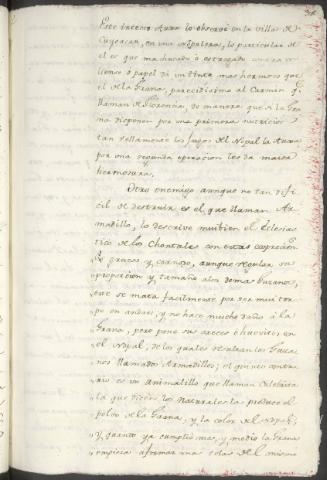 Este insecto Aura lo observé en la villa de
Cuyoacan, en una Nopalera, lo particular de
el es que machucado ó estregado en un
lienzo ó papel dá un tinte mas hermoso que
el de la Grana, parecidisimo al Carmin q.e
llaman de Florencia, de manera que si la Gra
na disponen por una primera nutricion
tan bellamente los jugos del Nopal la Aura
por una segunda operacion les da maior
hermosura.
Otro enemigo aunque no tan difi
cil de destruir es el que llaman Ar
madillo, lo describe mui bien el Eclesias
tico de los Chontales con estas expresion.s
es grueso y corto, aunque regular su
proporcion y tamaño a los demas Gusanos,
este se mata facilmente por ser mui tor
pe en andar, y no hace mucho daño à la
Grana, pero pone sus aceces ó huevitos, en
el Nopal, de los quales resultan los Gusa
nos llamados Armadillos; el quinto contra
rio es un Animalillo que llaman
la que dicen los Naturales la produce el
polvo de la Grana, y la color del Nopal;
y quando ya cumplió mes, y medio la Grana
empieza a formar una telas de el mismo